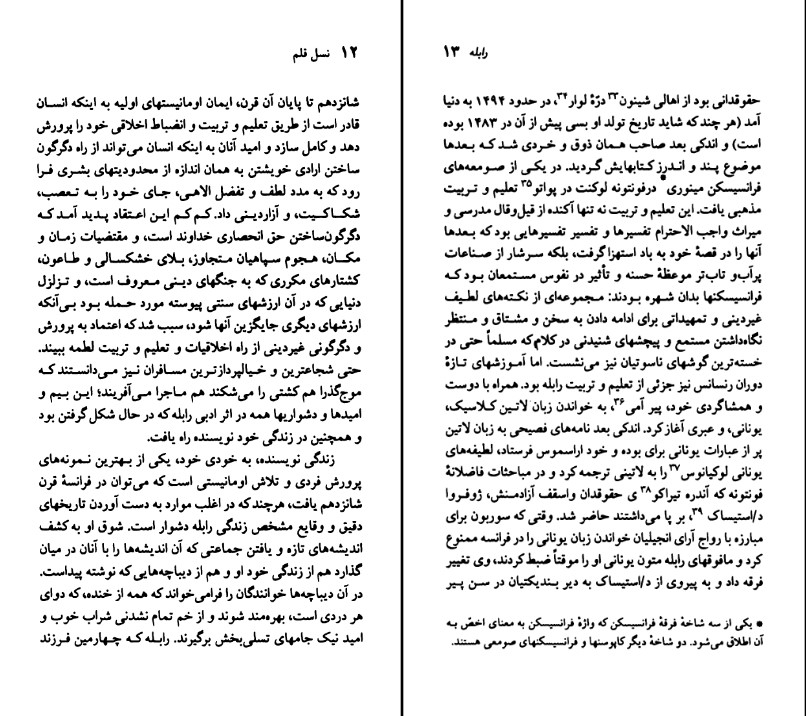 ۱۲ نسل قلم
شانزدهم تا پایان آن قرن، ایمان اومانیستهای اولیه به اینکه انسان
قادر است از طریق تعلیم و تربیت و انضباط اخلاقی خود را پرورش
دهد و کامل سازد و امید آنان به اینکه انسان می‌تواند از راه دگرگون
ساختن ارادی خویشتن به همان اندازه از محدودیتهای بشری فرا
رود که به مدد لطف و تفضل الاهی، جای خود را به تعصب،
شکاکیت، و آزاردینی داد. کم کم این اعتقاد پدید آمد که
دگرگون‌ساختن حق انحصاری خداوند است، و مقتضیات زمان و
مکان، هجوم سپاهیان متجاوز، بلای خشکسالی و طاعون،
کشتارهای مکرری که به جنگهای دینی معروف است، و تزلزل
دنیایی که در آن ارزشهای سنتی پیوسته مورد حمله بود بی‌آنکه
ارزشهای دیگری جایگزین آنها شود، سبب شد که اعتماد به پرورش
و دگرگونی غیردینی از راه اخلاقیات و تعلیم و تربیت لطمه ببیند.
حتی شجاعترین و خیالپردازترین مسافران نیز می‌دانستند که
موج‌گذرا هم کشتی را می‌شکند هم ماجرا می‌آفریند؛ این بیم و
امیدها و دشواریها همه در اثر ادبی رابله که در حال شکل گرفتن بود
و همچنین در زندگی خود نویسنده راه یافت.
زندگی نویسنده، به خودی خود، یکی از بهترین نمونه‌های
پرورش فردی و تلاش اومانیستی است که می‌توان در فرانسهٔ قرن
شانزدهم یافت، هرچند که در اغلب موارد به دست آوردن تاریخهای
دقیق و وقایع مشخص زندگی رابله دشوار است. شوق او به کشف
اندیشه‌های تازه و یافتن جماعتی که آن اندیشه‌ها را با آنان در میان
گذارد هم از زندگی خود او و هم از دیباچه‌هایی که نوشته پیداست.
در آن دیباچه‌ها خوانندگان را فرامی‌خواند که همه از خنده، که دوای
هر دردی است، بهره‌مند شوند و از خم تمام نشدنی شراب خوب و
امید نیک جامهای تسلی‌بخش برگیرند. رابله که چهارمین فرزند
رابله ۱۳
حقوقدانی بود از اهالی شینون۳۳ درّهٔ لوار۳۴، در حدود ۱۴۹۴ به دنیا
آمد (هر چند که شاید تاریخ تولد او بسی پیش از آن در ۱۴۸۳ بوده
است) و اندکی بعد صاحب همان ذوق و خردی شد که بعدها
موضوع پند و اندرز کتابهایش گردید. در یکی از صومعه‌های
فرانسیسکن مینوری* درفونتونه لوکنت در پواتو۳۵ تعلیم و تربیت
مذهبی یافت. این تعلیم و تربیت نه تنها آکنده از قیل‌وقال مدرسی و
میراث واجب الاحترام تفسیرها و تفسیر تفسیرهایی بود که بعدها
آنها را در قصهٔ خود به باد استهزا گرفت، بلکه سرشار از صناعات
پرآب‌و تاب‌تر موعظهٔ حسنه و تأثیر در نفوس مستمعان بود که
فرانسیسکنها بدان شهره بودند: مجموعه‌ای از نکته‌های لطیف
غیردینی و تمهیداتی برای ادامه دادن به سخن و مشتاق و منتظر
نگاه‌داشتن مستمع و پیچشهای شنیدنی در کلام که مسلماً حتی در
خسته‌ترین گوشهای ناسوتیان نیز می‌نشست. اما آموزشهای تازهٔ
دوران رنسانس نیز جزئی از تعلیم و تربیت رابله بود. همراه با دوست
و همشاگردی خود، پیر آمی۳۶، به خواندن زبان لاتین کلاسیک،
یونانی، و عبری آغاز کرد. اندکی بعد نامه‌های فصیحی به زبان لاتین
پر از عبارات یونانی برای بوده و خود اراسموس فرستاد، لطیفه‌های
یونانی لوکیانوس۳۷ را به لاتینی ترجمه کرد و در مباحثات فاضلانهٔ
فونتونه که آندره تیراکو۳۸ ی حقوقدان واسقف آزادمنش، ژوفروا
د/استیساک ۳۹، بر پا می‌داشتند حاضر شد. وقتی که سوربون برای
مبارزه با رواج آرای انجیلیان خواندن زبان یونانی را در فرانسه ممنوع
کرد و مافوقهای رابله متون یونانی او را موقتاً ضبط کردند، وی تغییر
فرقه داد و به پیروی از د/استیساک به دیر بندیکتیان در سن پیر
* یکی از سه شاخهٔ فرقهٔ فرانسیسکن که واژهٔ فرانسیسکن به معنای اخصّ به
آن اطلاق می‌شود. دو شاخهٔ دیگر کاپوسنها و فرانسیسکنهای صومعی هستند.